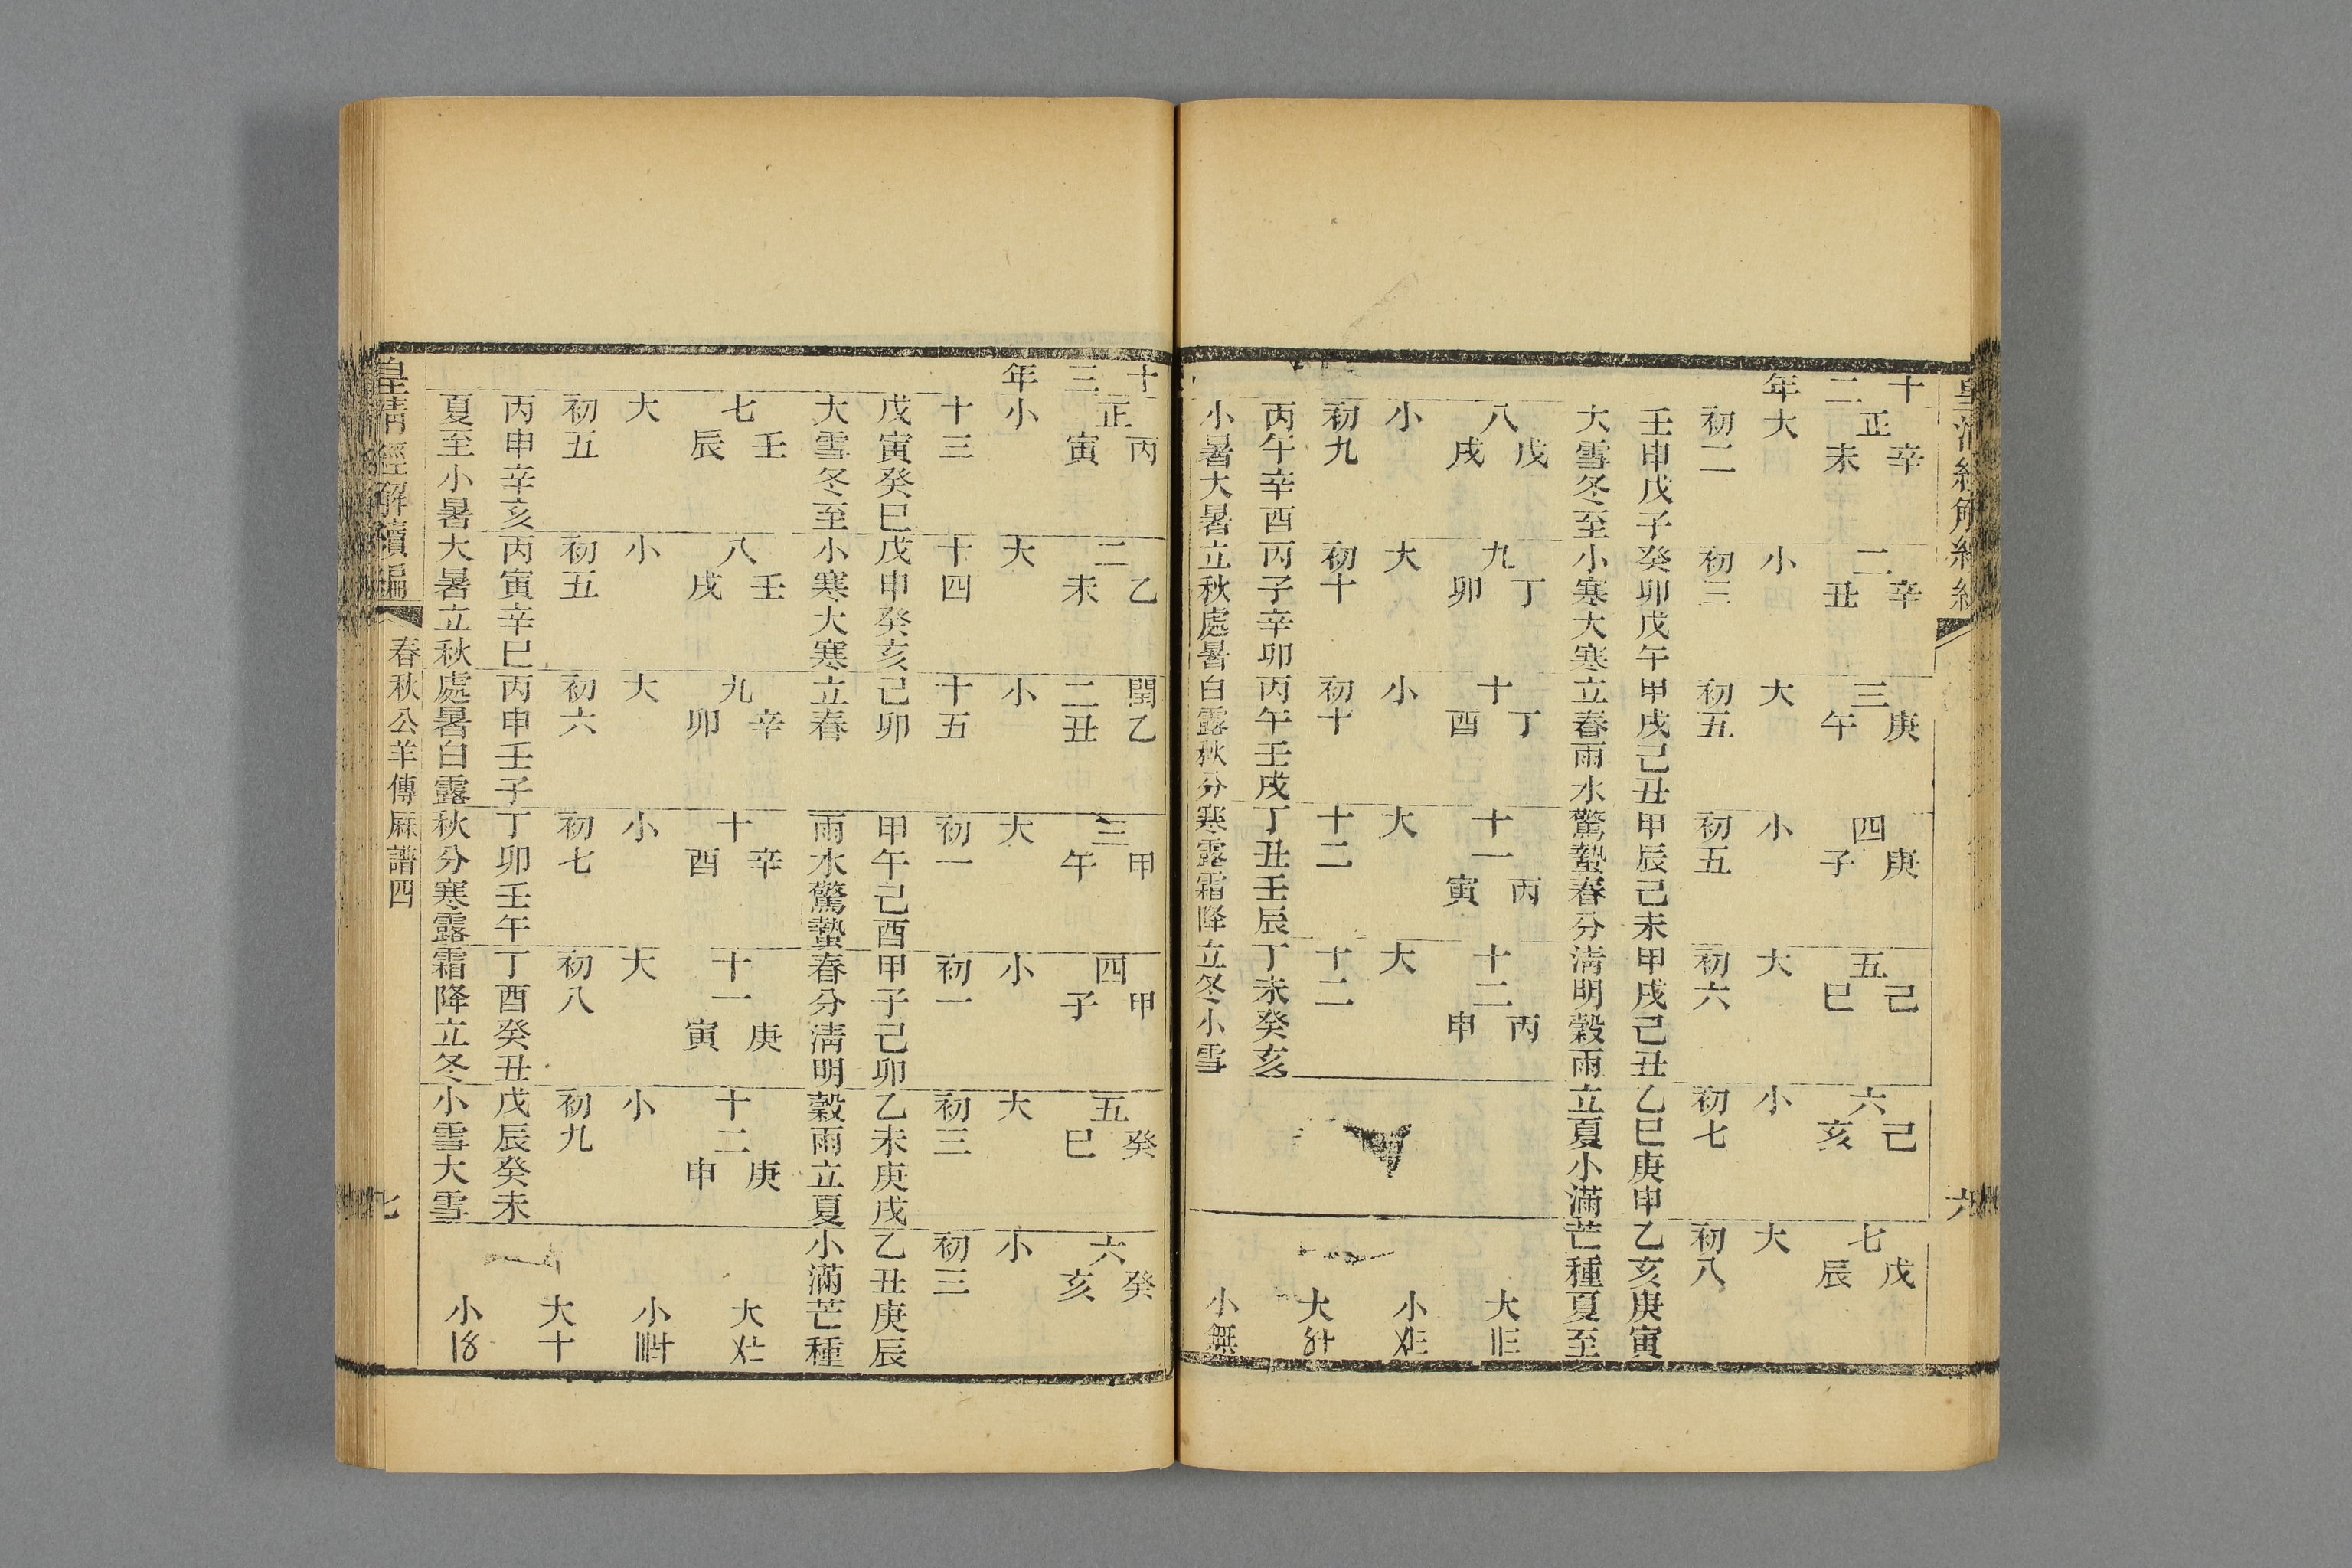 皇清經解續編
六
十二年
正辛未 二辛丑 三庚午 四庚子 五己巳 六己亥 七戊辰
大 小 大 小 大 小 大
初二 初三 初五 初五 初六 初七 初八
壬申戊子 癸卯戊午 甲戌己丑 甲辰己未 甲戌己丑 乙巳庚申 乙亥庚寅
大雪冬至 小寒大寒 立春雨水 驚蟄春分 清明穀雨 立夏小滿 芒種夏至
八戊戌 九丁卯 十丁酉 十一丙寅 十二丙申 大
小 大 小 大 大 小
初九 初十 初十 十二 十二 大
丙午辛酉 丙子辛卯 丙午壬戌 丁丑壬辰 丁未癸亥
小暑大暑 立秋處暑 白露秋分 寒露霜降 立冬小雪 小無
十三年
正丙寅 二乙未 閏二乙丑 三甲午 四甲子 五癸巳 六癸亥
小 大 小 大 小 大 小
十三 十四 十五 初一 初一 初三 初三
戊寅癸巳 戊申癸亥 己卯 甲午己酉 甲子己卯 乙未庚戌 乙丑庚辰
大雪冬至 小寒大寒 立春 雨水驚蟄 春分清明 穀雨立夏 小滿芒種
七壬辰 八壬戌 九辛卯 十辛酉 十一庚寅 十二庚申 大
大 小 大 小 大 小 小
初五 初五 初六 初七 初八 初九 大十
丙申辛亥 丙寅辛巳 丙申壬子 丁卯壬午 丁酉癸丑 戊辰癸未
夏至小暑 大暑立秋 處暑白露 秋分寒露 霜降立冬 小雪大雪 小
皇清經解續編
春秋公羊傳厤譜四
七